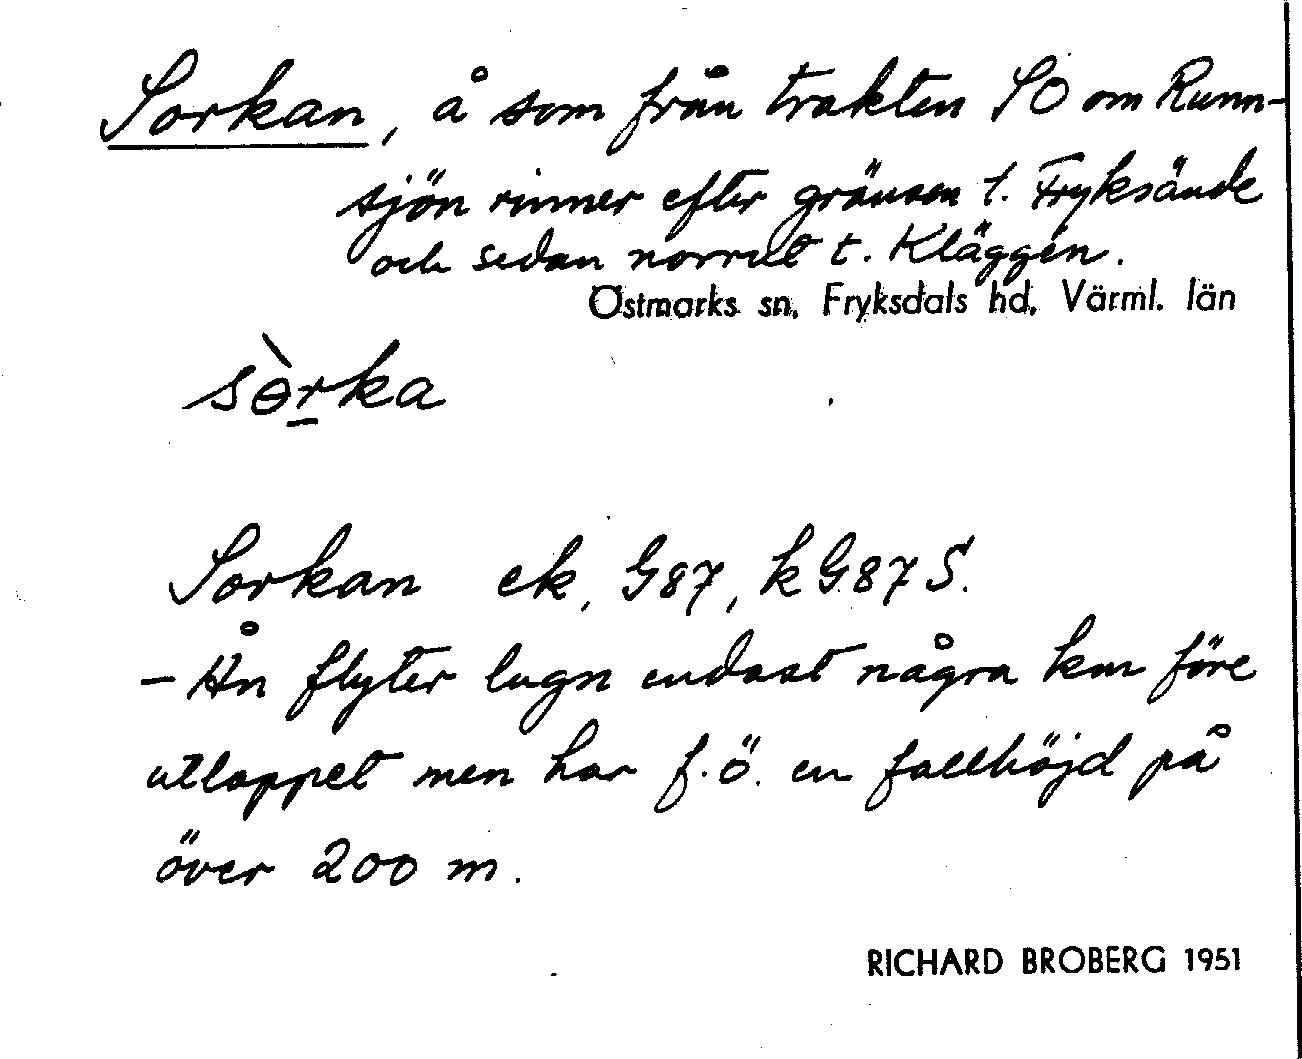 Sorkan, å som från trakten SO om Runn-
sjön rinner efter gränsen t. Fryksände
och sedan norrut t. Kläggen.
Östmarks sn, Fryksdals hd, Värml. län
sɵ̀r̠ka
Sorkan ek, G87, kG87S.
– Ån flyter lugn endast några km före
utloppet men har f.ö. en fallhöjd på
över 200 m.
RICHARD BROBERG 1951